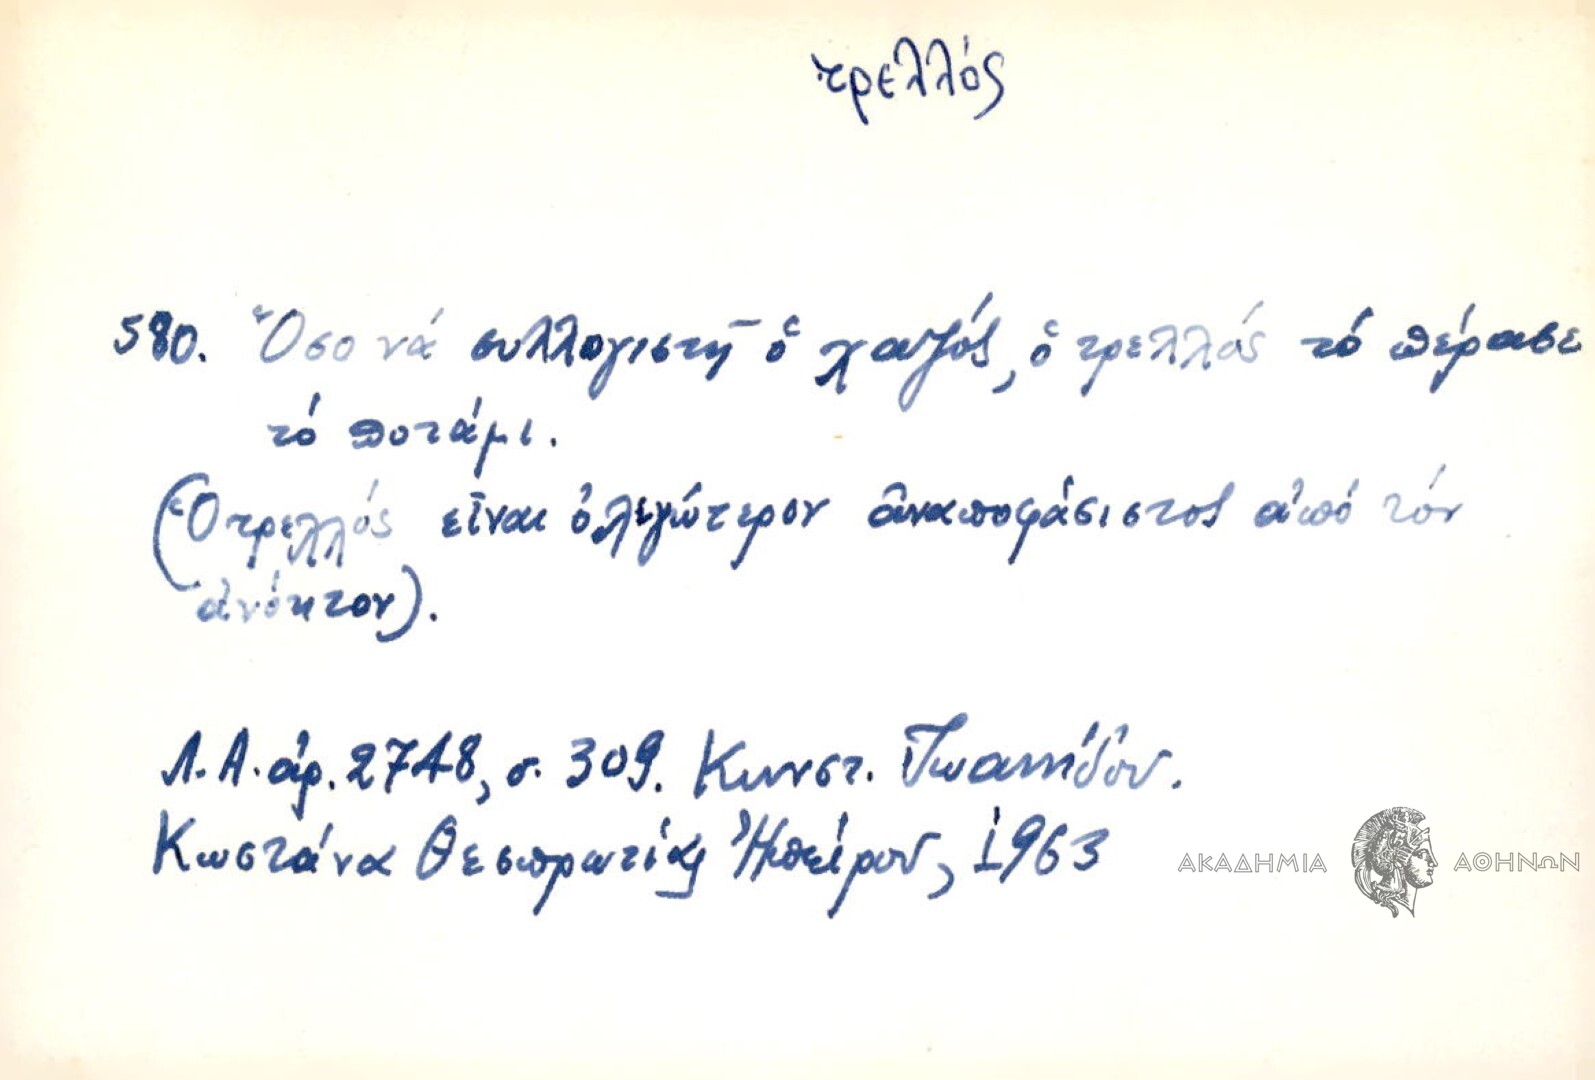 τρελλός
580. Ὅσο νά συλλογιστῆ ὁ χαζός, ὁ τρελλός τό πέρασε
τό ποτάμι.
(Ὁ τρελλός εἶναι ὀλιγώτερον ἀναποφάσιστος ἀπό τόν
ἀνόητον).
Λ.Α. ἀρ. 2748, σ. 309. Κωνστ. Ἰωαννίδου.
Κωστάνα Θεσπρωτίας Ἠπείρου, 1963
ΑΚΑΔΗΜΙΑ ΑΘΗΝΩΝ